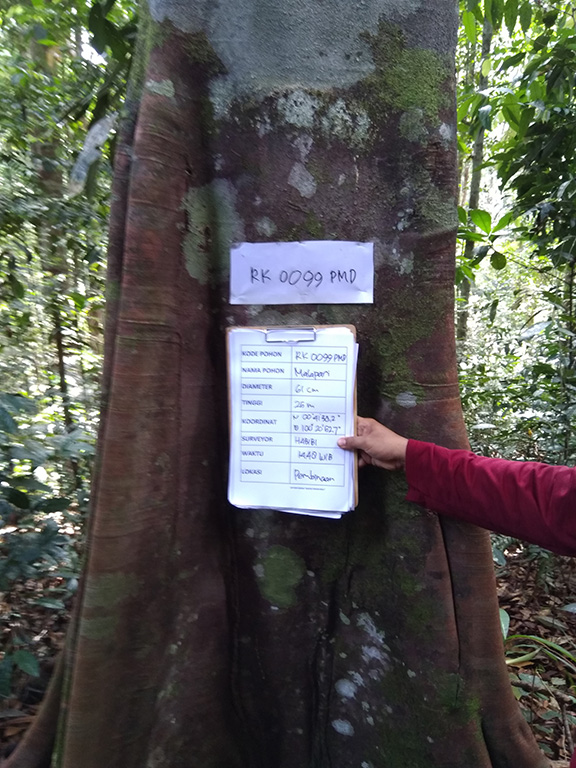 RK 0099 PMD
KODE POHON RK 0099 PMD
NAMA POHON Malapari
DIAMETER 61 cm
TINGGI 26 m
KOORDINAT N 00°41'
E 100°20'52.7"
SURVEYOR HABIBI
WAKTU WIB
LOKASI Pembinaan